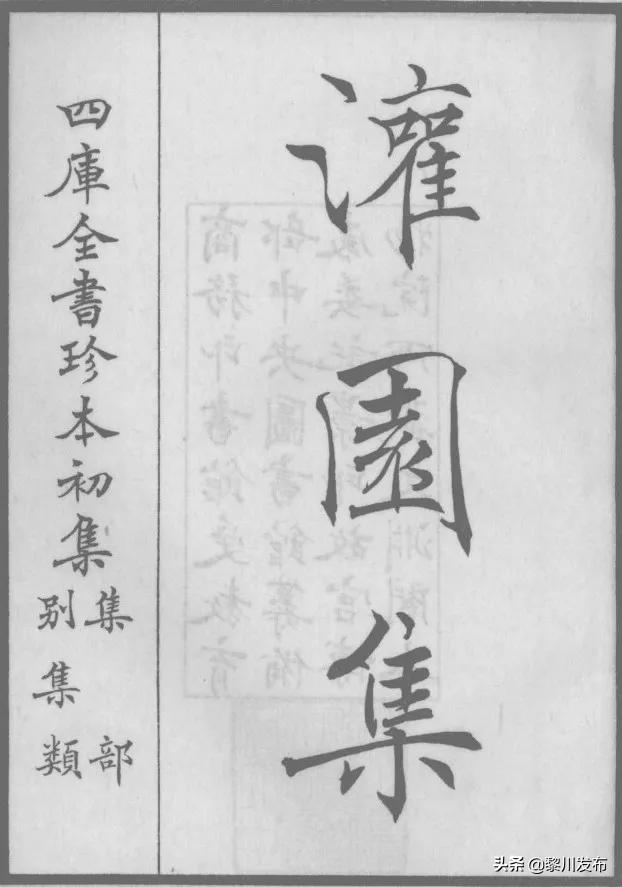 灌園集
四庫全書珍本初集
集部
別集類
头条 @黎川发布